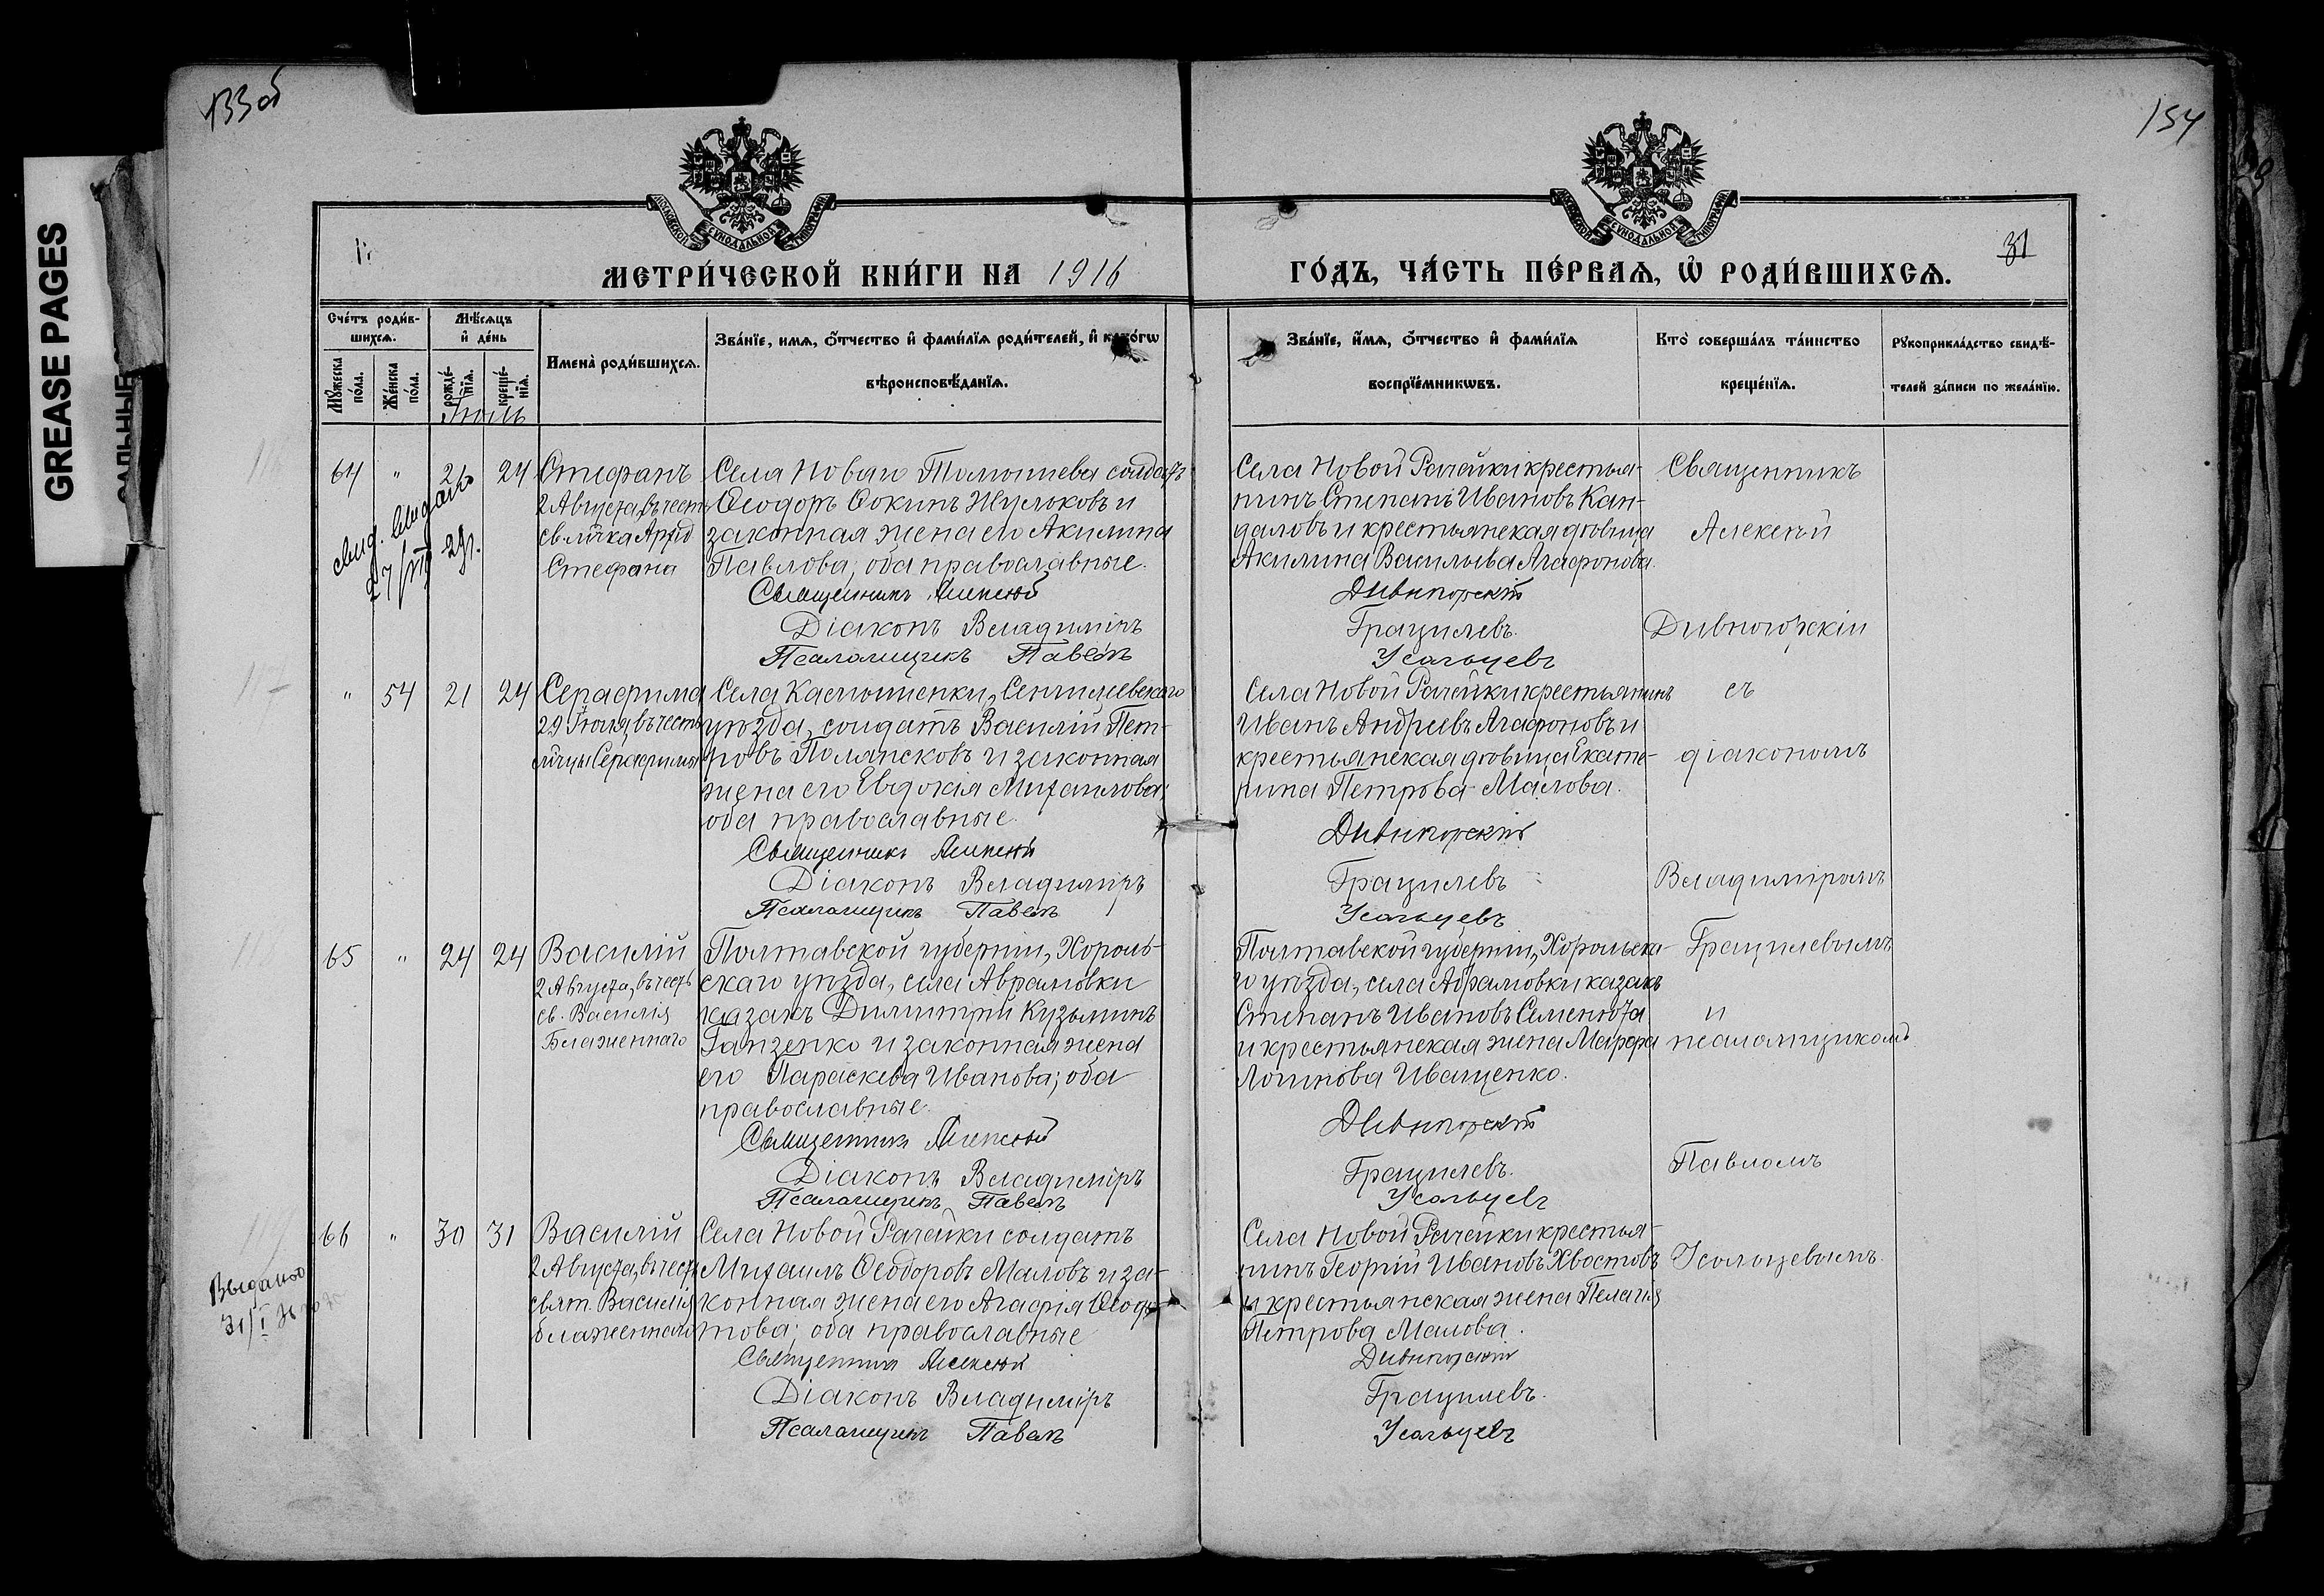 133 об
154
GREASE PAGES
31
МЕТРИ́ЧЕСКОЙ КНИ́ГИ НА 1916 ГО́ДЪ, ЧА́СТЬ ПЕ́РВАѦ, Ѡ҆ РОДИ́ВШИХСѦ.
Сче́тъ роди́в-
шихсѧ.
Мѣ́сѧцъ
и҆ де́нь
Имена̀ роди́вшихсѧ.
Зва́нїе, имѧ, ѻ҆́тчество и҆ фами́лїѧ роди́телей, и҆ како́гѡ
вѣроисповѣ́данїѧ.
Зва́нїе, и҆́мѧ, ѻ҆́тчество и҆ фами́лїѧ
воспрїе́мникѡвъ.
Кто̀ соверша́лъ та́инство
креще́нїѧ.
Рꙋкоприкла́дство свидѣ́-
телей за́писи по жела́нїю.
Мꙋ́жеска
по́ла.
Же́нска
по́ла.
рожде́-
нїѧ.
креще́-
нїѧ.
Іюль
64 " 21 24
Стефанъ
2 Августа, въ честь
св. м-ка Архид
Стефана
Села Новаго Томышева солдатъ
Ѳеодоръ Ѳокинъ Жулюковъ и
законная жена его Акилина
Павлова; оба православные.
Священникъ Алексѣй
Діаконъ Владиміръ
Псаломщикъ Павелъ
Села Новой Рачейки крестья-
нинъ Степанъ Ивановъ Кан-
даловъ и крестьянская дѣвица
Акилина Васильева Агафонова.
Дивногорскій
Грацилевъ.
Усольцевъ
Священникъ
Алексѣй
Дивногорскіи
съ
діакономъ
Владиміромъ
Грацилевымъ
и
псаломщикомъ
Павломъ
Усольцевымъ.
свид. выдано
27/VII 29г.
" 54 21 24
Серафима
29 Іюля, въ честь
м-цы Серафимы
Села Каспошенки, Сенгилеевскаго
уѣзда, солдатъ Василій Пет-
ровъ Полянсковъ и законная
жена его Евдокія Михаилова;
оба православные.
Священникъ Алексѣй
Діаконъ Владиміръ
Псаломщикъ Павелъ
Села Новой Рачейки крестьянинъ
Иванъ Андреевъ Агафоновъ и
крестьянская дѣвица Екате-
рина Петрова Малова.
Дивногорскій
Грацилевъ
Усольцевъ
65 " 24 24
Василій
2 Августа, въ честь
св. Василія
Блаженнаго
Полтавской губерніи, Хороль-
скаго уѣзда, села Аврамовки
казакъ Димитрій Кузьминъ
Ганзенко и законная жена
его Параскева Иванова; оба
православные.
Священникъ Алексѣй
Діаконъ Владиміръ
Псаломщикъ Павелъ
Полтавской губерніи, Хорольска-
го уѣзда, села Абрамовки казакъ
Степанъ Ивановъ Семенюта
и крестьянская жена Марфа
Логинова Иващенко.
Дивногорскій
Грацилевъ.
Усольцевъ
66 " 30 31
Василій
2 Августа, въ честь
свят. Василія
блаженнаго
Села Новой Рачейки солдатъ
Михаилъ Ѳеодоровъ Маловъ и за-
конная жена его Агафія Ѳеодо-
това; оба православные
Священникъ Алексѣй
Діаконъ Владиміръ
Псаломщикъ Павелъ
Села Новой Рачейки крестья-
нинъ Георгій Ивановъ Хвостовъ
и крестьянская жена Пелагія
Петрова Малова.
Дивногорскій
Грацилевъ.
Усольцевъ
Выдано
31/I 36